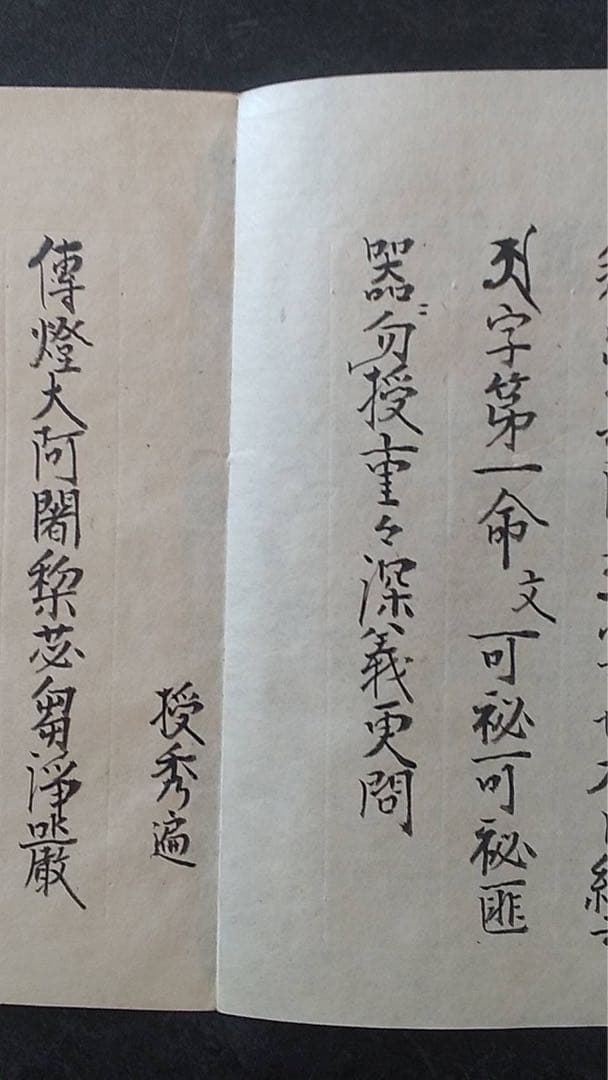 𑖀字第一命文可祕可祕匪
器ニ勿授重々深義更問
授秀遍
傳燈大阿闍梨苾蒭淨嚴